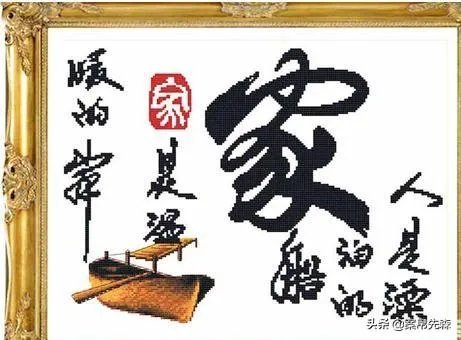 人是漂
泊的
船
家
家
是温
暖的岸
头条 @
先森